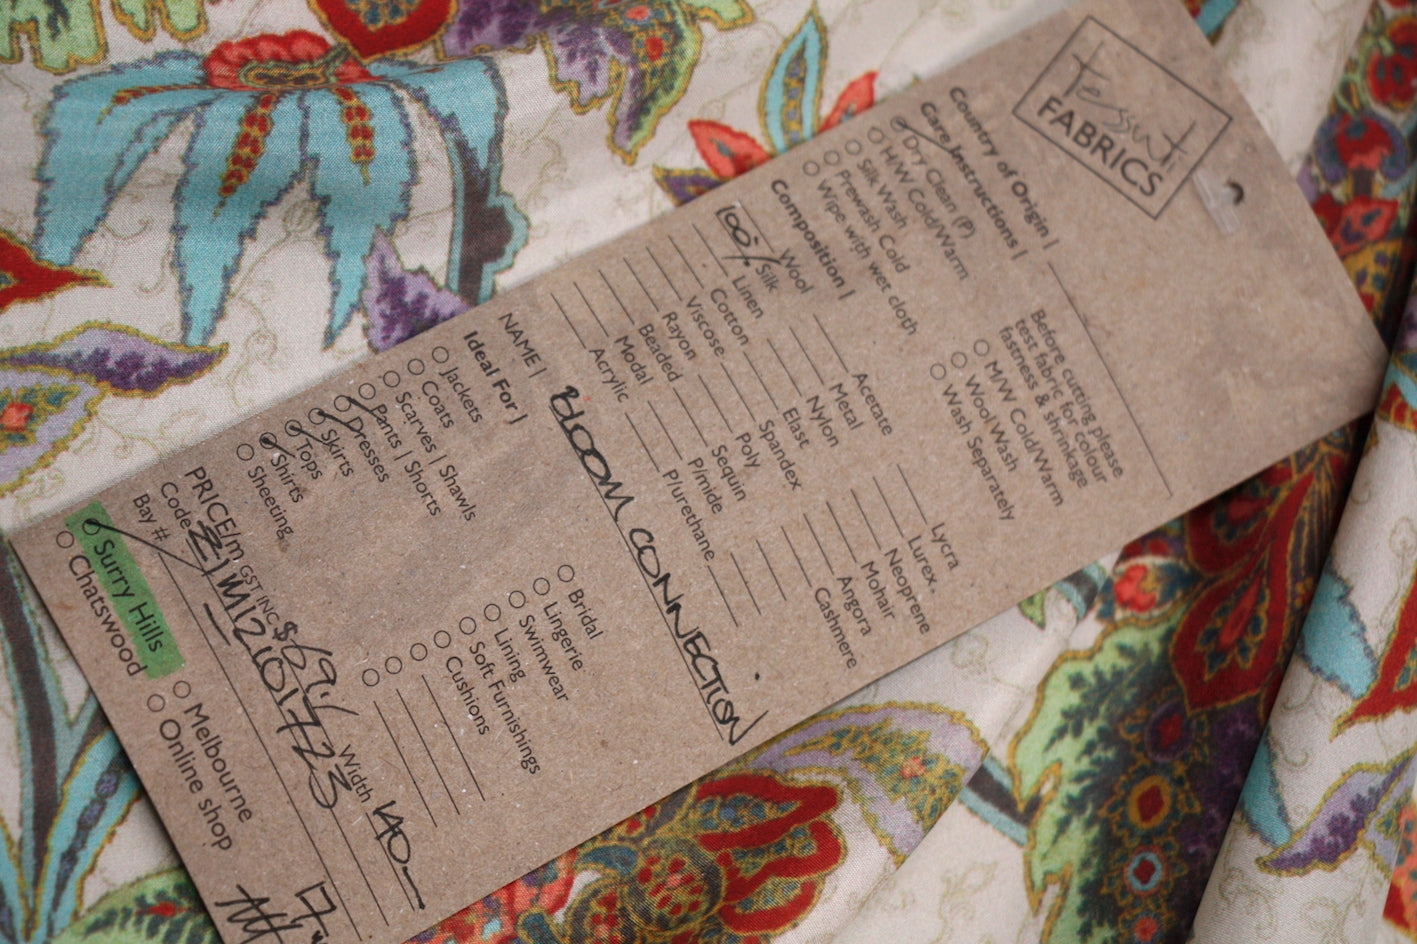 Tessuti
FABRICS
Country of Origin |
Care Instructions |
Dry Clean (P)
H/W Cold/Warm
Silk Wash
Prewash Cold
Wipe with wet cloth
Before cutting please
test fabric for colour
fastness & shrinkage
M/W Cold/Warm
Wool Wash
Wash Separately
Composition |
Wool
100% Silk
Linen
Cotton
Viscose
Rayon
Beaded
Modal
Acrylic
Acetate
Metal
Nylon
Elast
Spandex
Poly
Sequin
P/mide
P/urethane
Lycra
Lurex
Neoprene
Mohair
Angora
Cashmere
NAME | BLOOM CONNECTION
Ideal For |
Jackets
Coats
Scarves | Shawls
Pants | Shorts
Dresses
Skirts
Tops
Shirts
Sheeting
Bridal
Lingerie
Swimwear
Lining
Soft Furnishings
Cushions
PRICE/m GST INC $69. Width 140
Code
Bay #
Surry Hills
Chatswood
Melbourne
Online shop